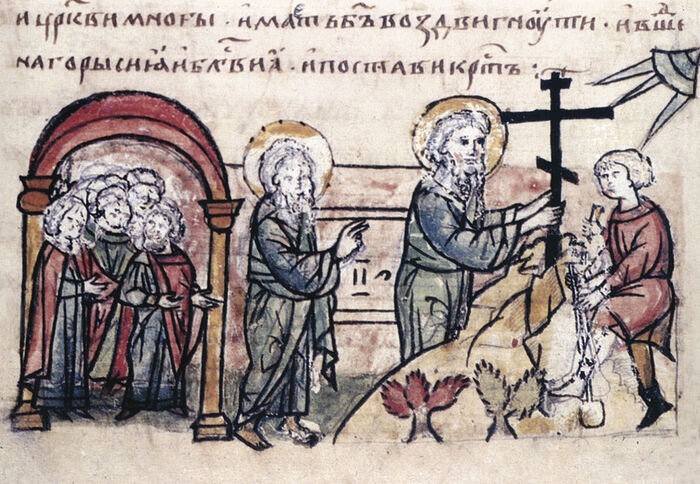 и цр҃кви многы · имать бъ воздвигноути · и въшеⷣ
на горы сиꙗ и блⷵви ѧ · и постави крⷭтъ :